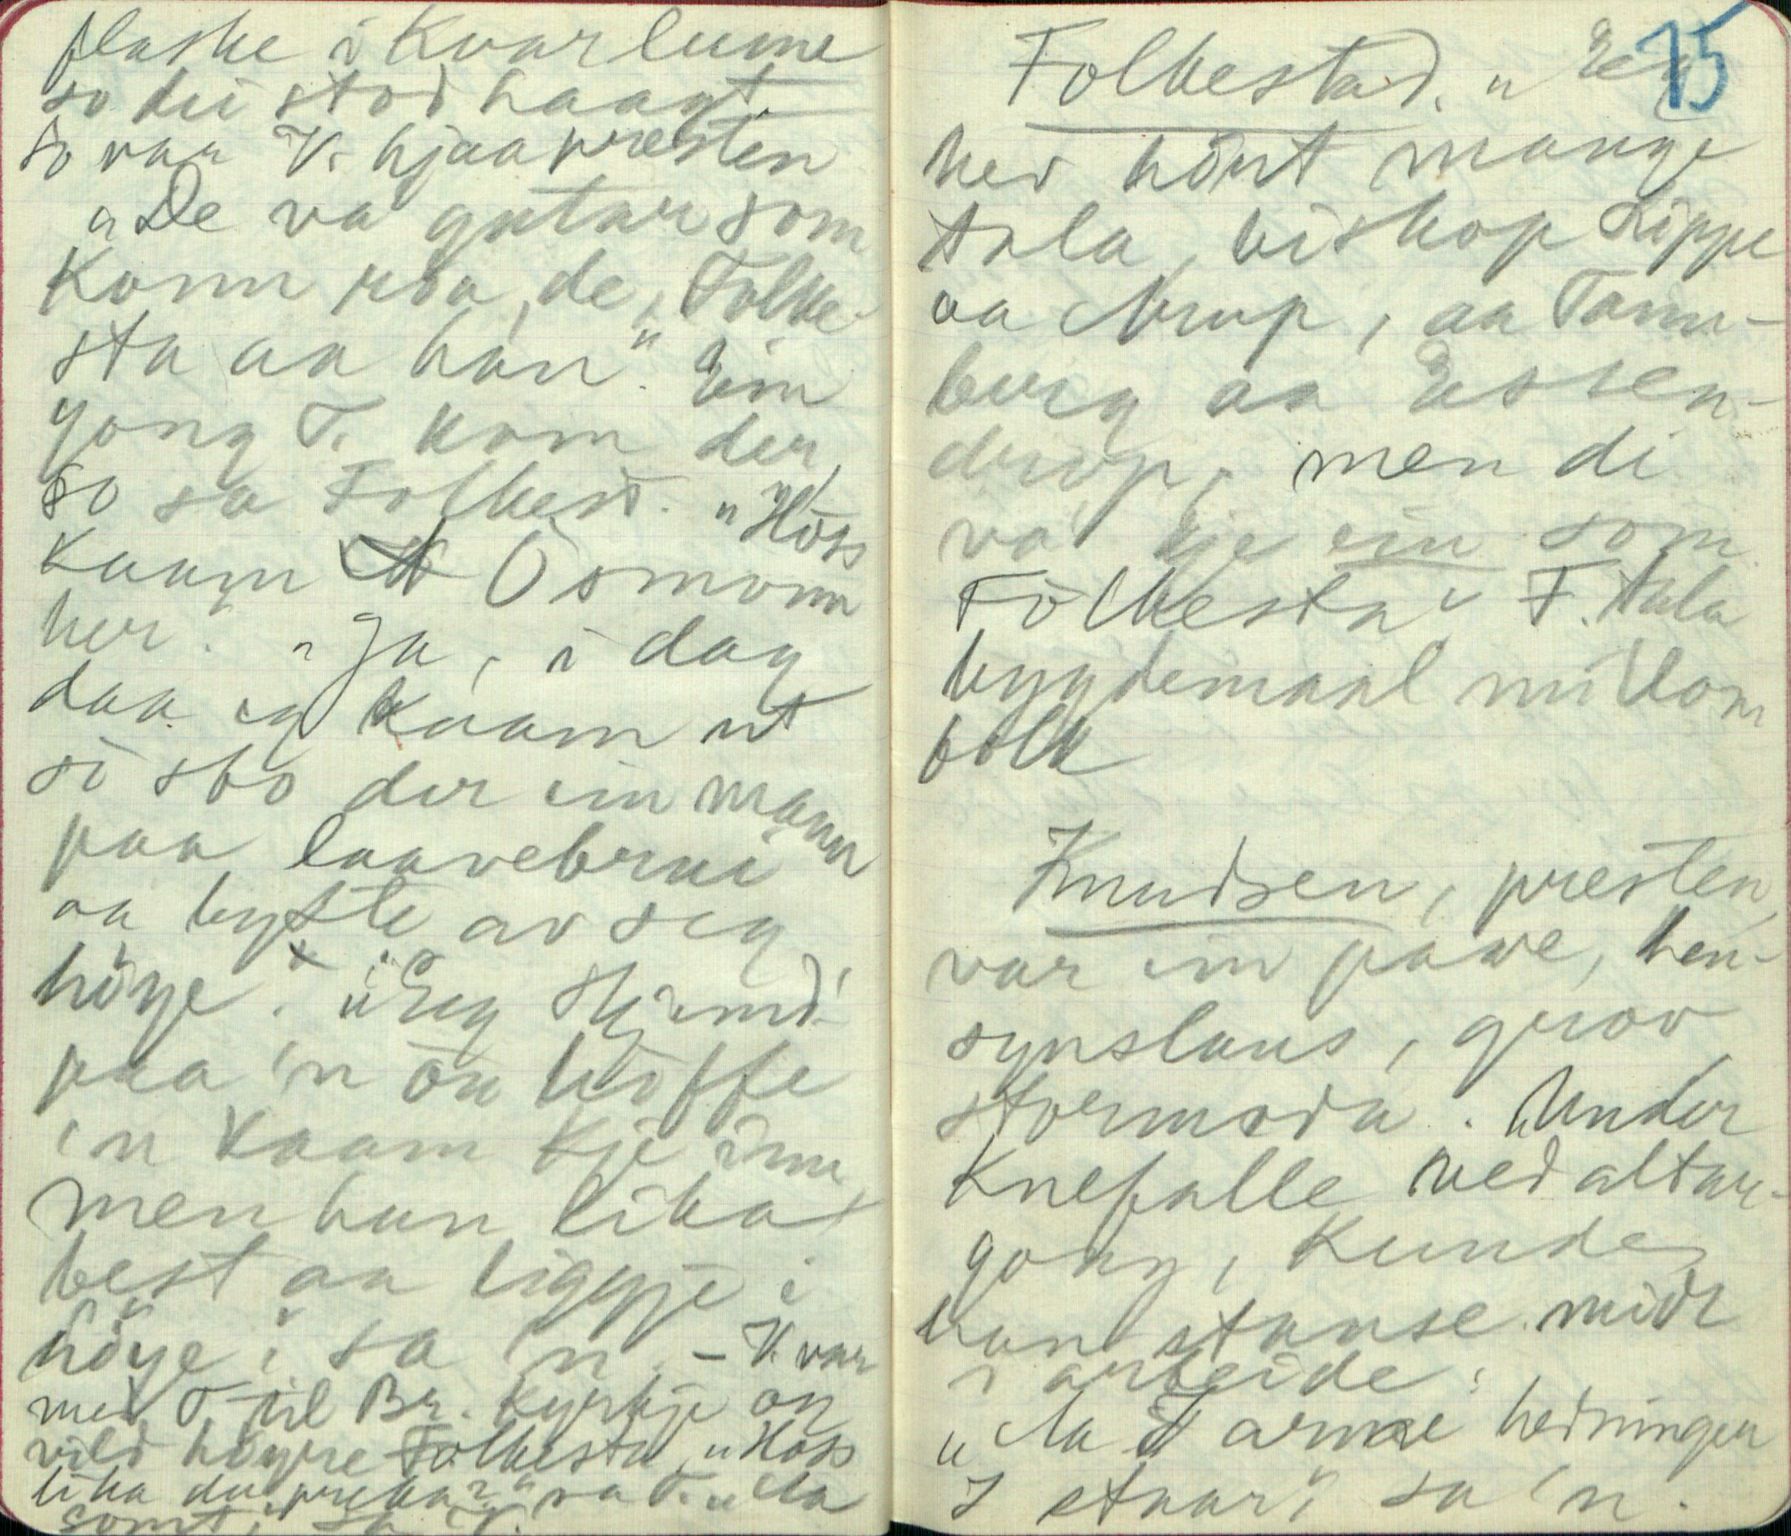 flaske i kvar lume
so dei stod haagt.
So var V. hjaa presten
"De va gutar som
konn præa, de, Folke-
sta aa han". Ein
gong T. kom der,
so sa Folkest. "Høss
kaam Osmonn
her". "Ja, i dag
daa eg kaam ut
so sto der ein mann
paa laavebrui
aa byste av seg
høye". "Eg skjend-
paa 'n aa høffe
'n kaam kje inn,
men han lika
best aa liggje i
høye", sa 'n. - V. var
med T. til Br. kyrkje og
vild høyre Folkesta, "Høss
lika du preka?" sa T. "Aa
somt", sa V.
75
Folkestad. "Eg
her hørt mange
tala, biskop Lippe
aa Arup, aa Tann-
berg aa Essen-
drop, men di
va kje ein som
Folkesta". F. tala
bygdemaal millom
folk
Knudsen, presten,
var ein pave, hen-
synslaus, grov,
stormoda. Under
knefalle ved altar-
gong, kunde
han stanse midt
i arbeide:
"Aa I arme hedningen
I staar", sa 'n.